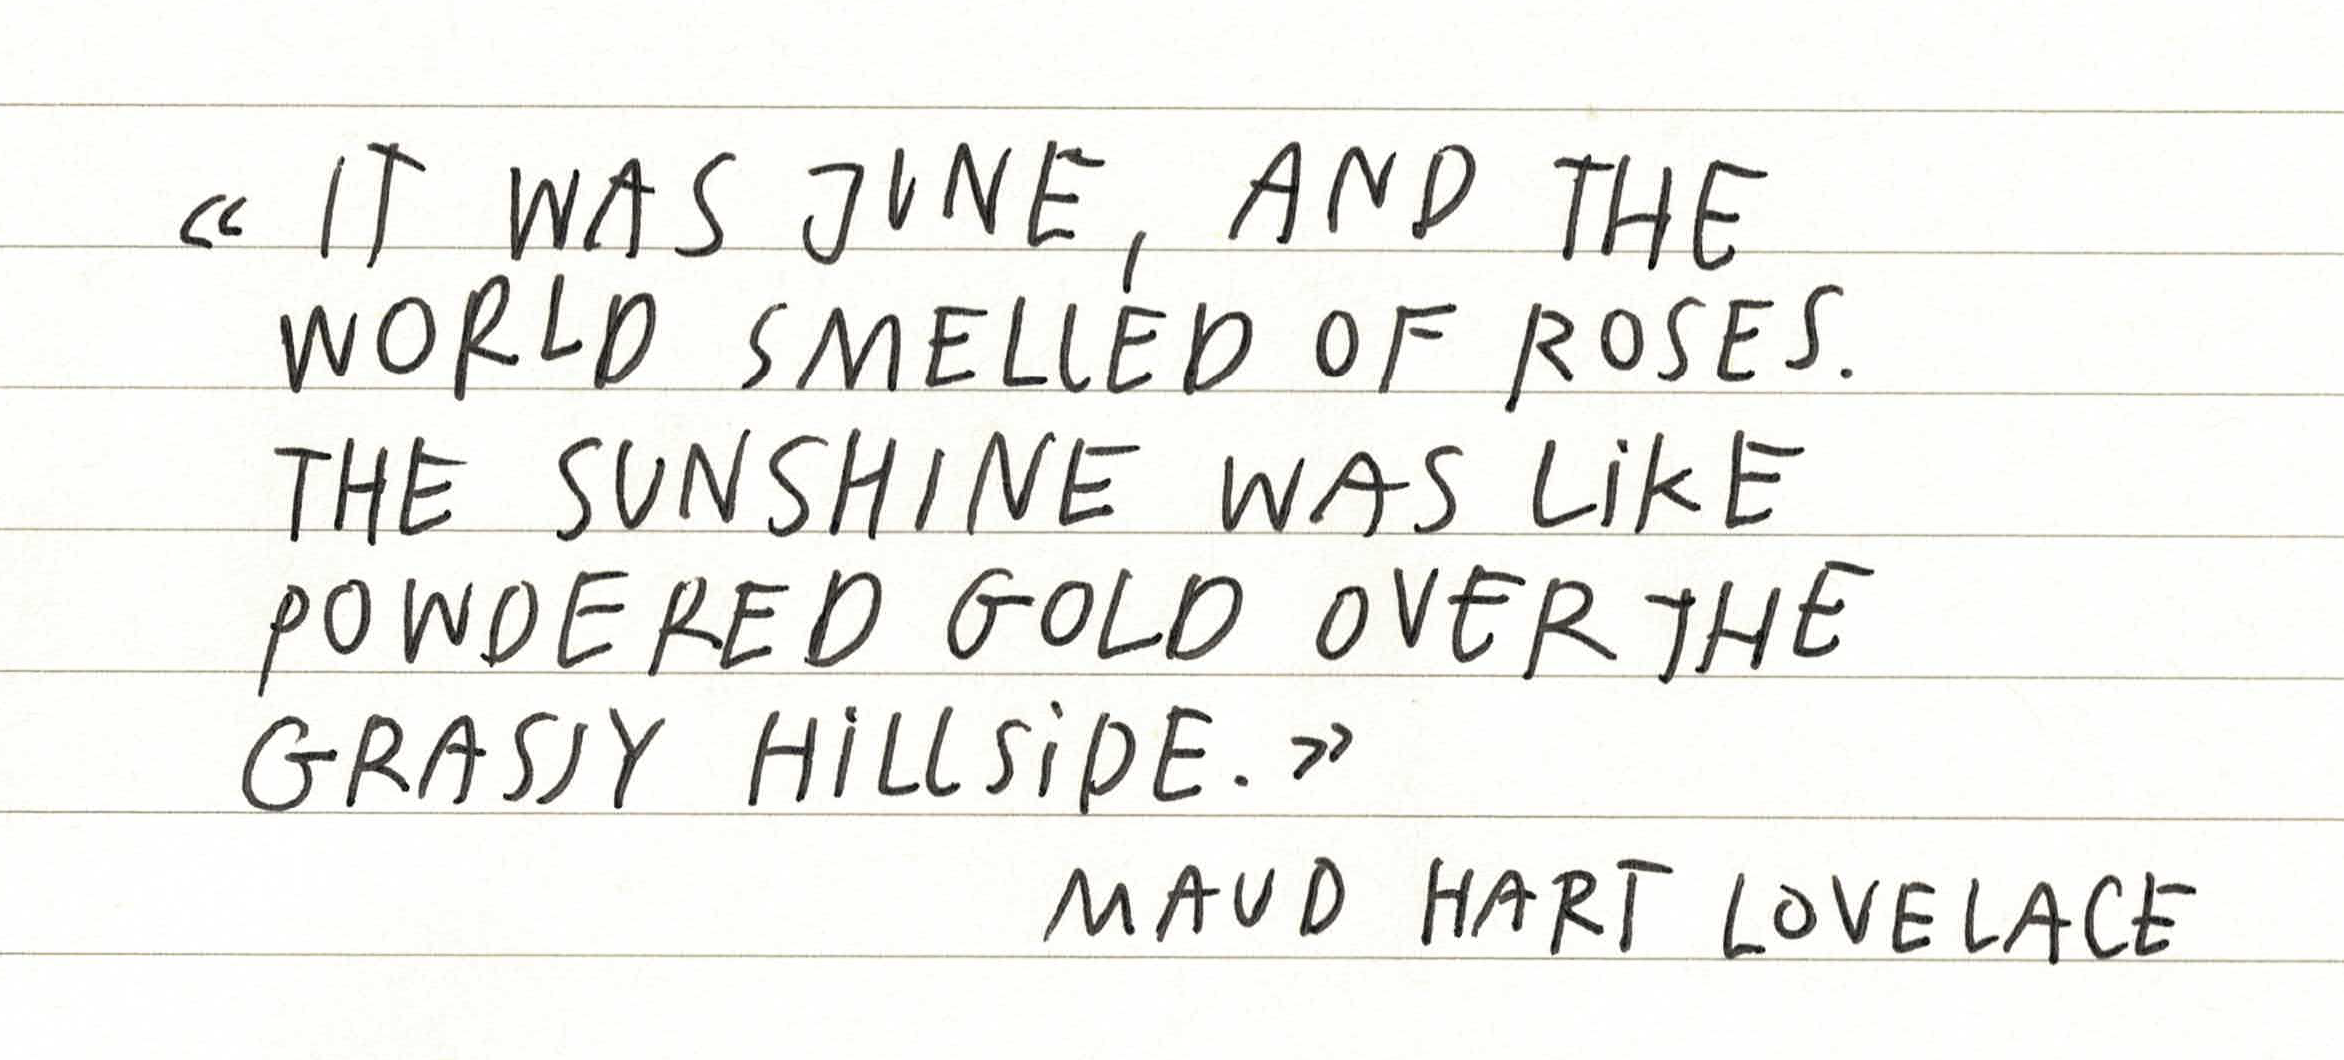 « IT WAS JUNE, AND THE
WORLD SMELLED OF ROSES.
THE SUNSHINE WAS LiKE
POWDERED GOLD OVER THE
GRASSY HiLLSiDE. »
MAUD HART LOVELACE